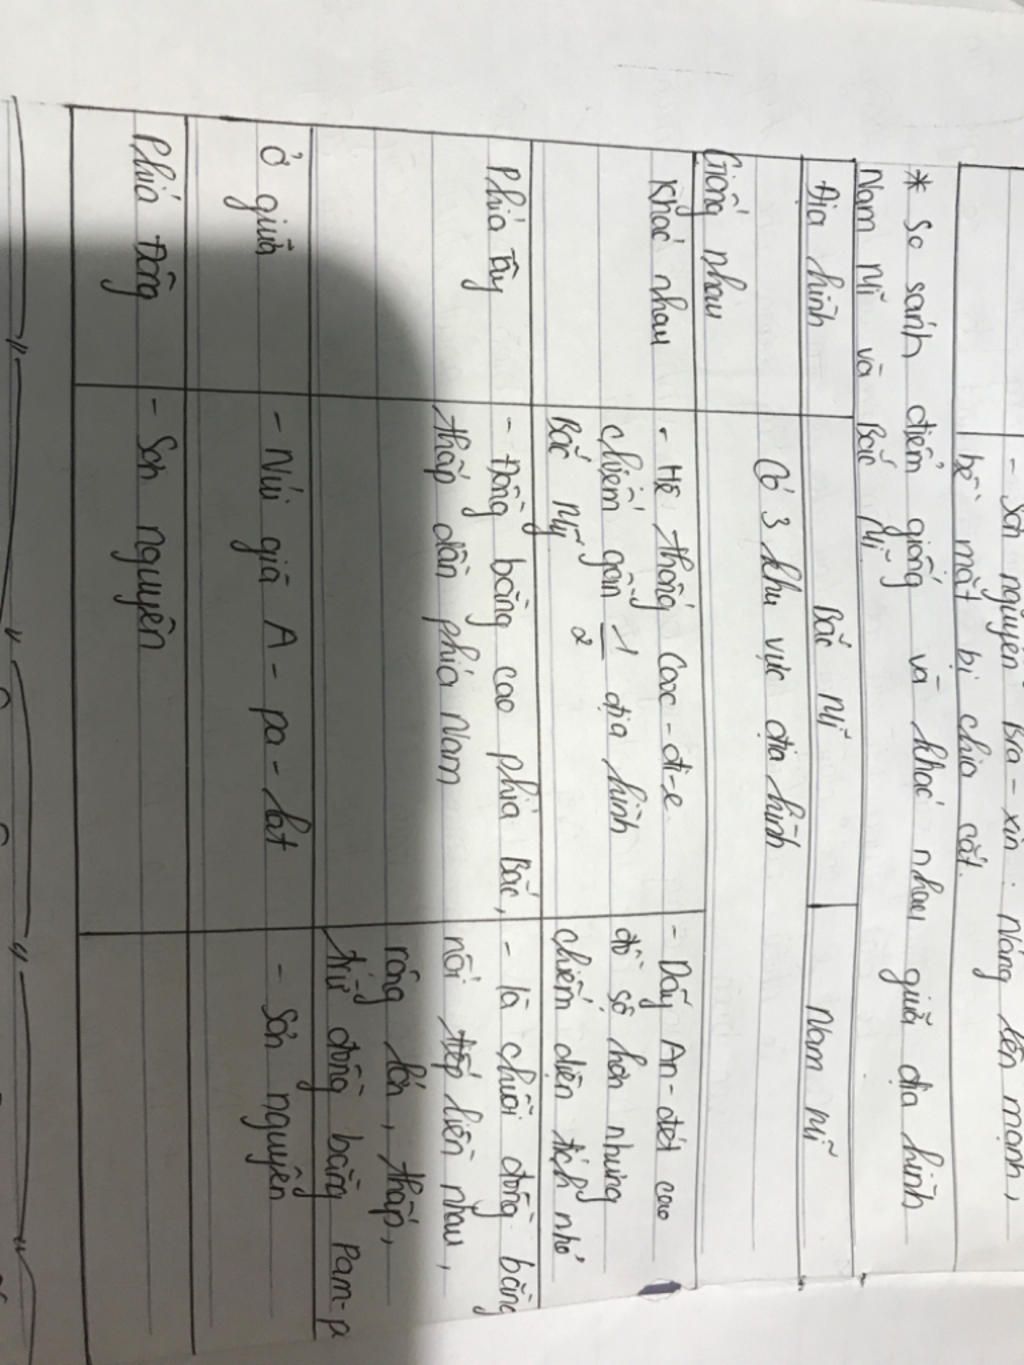 - Sơn nguyên Bra-xin: Nâng lên mạnh,
bề mặt bị chia cắt.
* So sánh điểm giống và khác nhau giữa địa hình
Nam Mĩ và Bắc Mĩ
Địa hình Bắc Mĩ Nam Mĩ
Giống nhau Có 3 khu vực địa hình
Khác nhau - Hệ thống Cooc-đi-e - Dãy An-đét cao
chiếm gần 1/2 địa hình đồ sộ hơn nhưng
Bắc Mĩ chiếm diện tích nhỏ
Phía Tây - Đồng bằng cao phía Bắc, - là chuỗi đồng bằng
thấp dần phía Nam nối tiếp liền nhau,
rộng lớn, thấp,
trừ đồng bằng Pam-pa
Ở giữa - Núi già A-pa-lat - Sơn nguyên
Phía Đông - Sơn nguyên